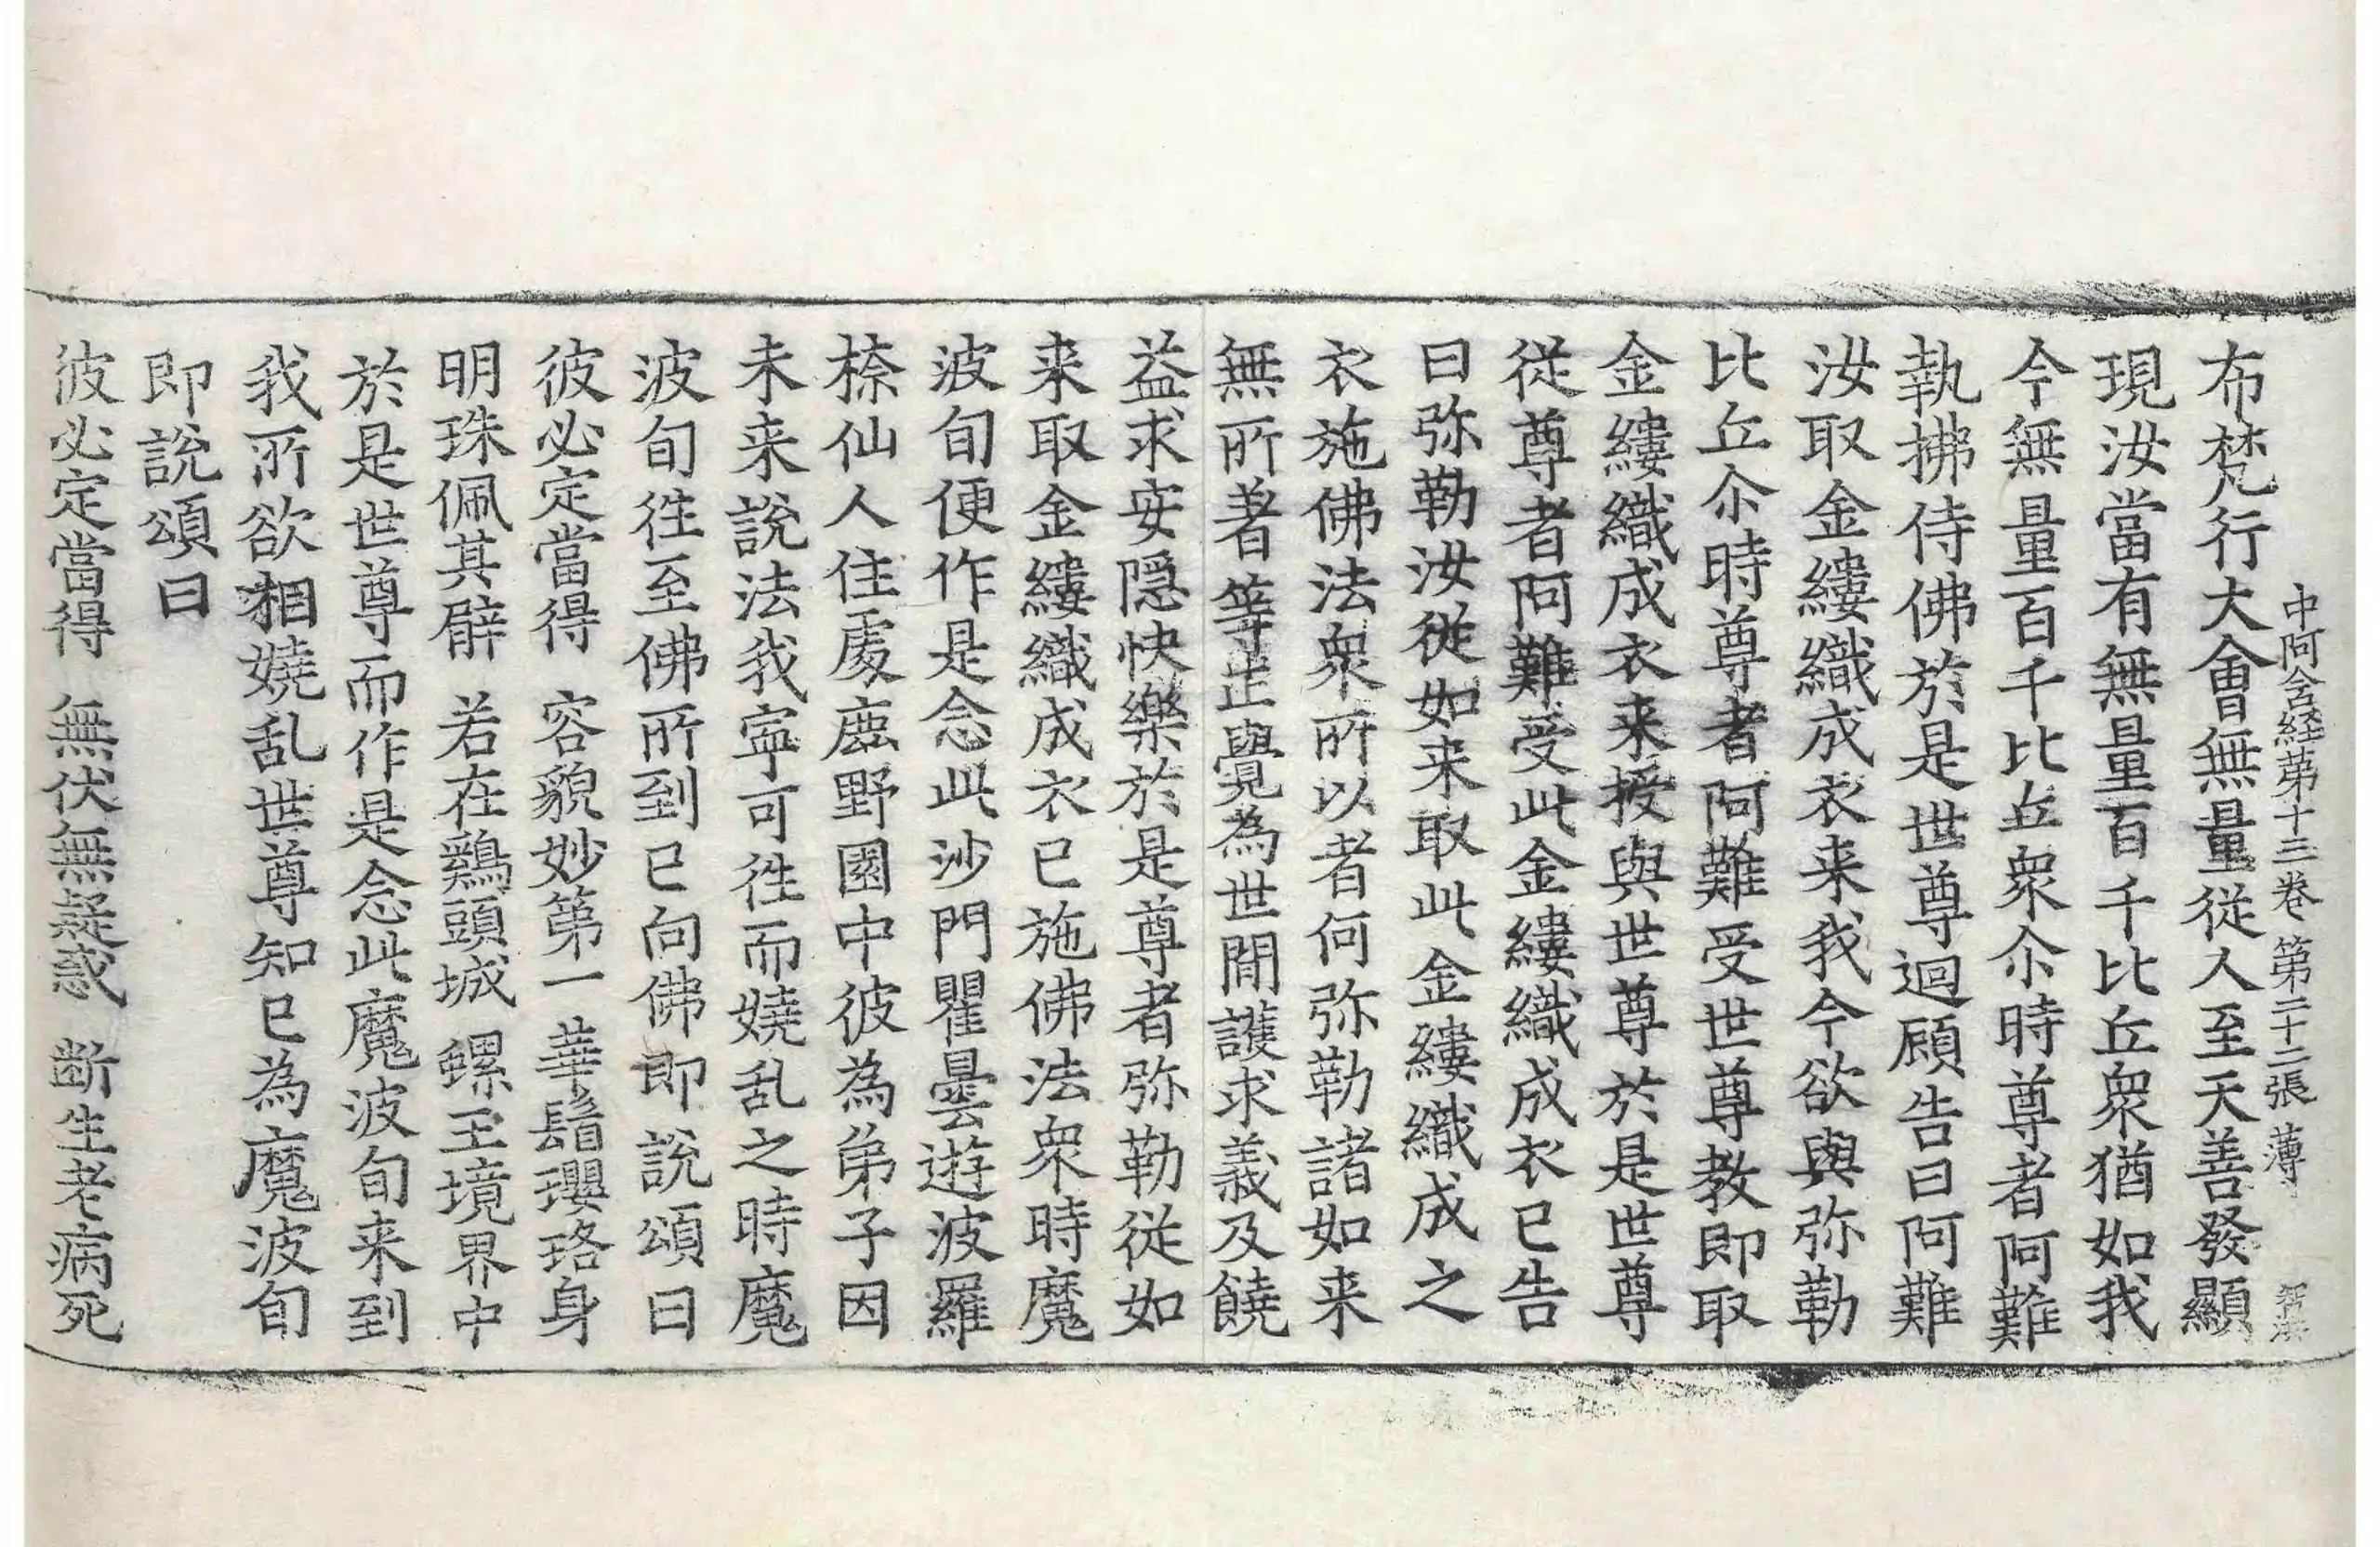 中阿含経第十三巻 第二十二張 薄
布梵行大會無量從人至天善發顯
現汝當有無量百千比丘衆猶如我
今無量百千比丘衆尒時尊者阿難
執拂侍佛於是世尊迴顧告曰阿難
汝取金縷織成衣来我今欲與弥勒
比丘尒時尊者阿難受世尊教即取
金縷織成衣来授與世尊於是世尊
從尊者阿難受此金縷織成衣已告
曰弥勒汝從如来取此金縷織成之
衣施佛法衆所以者何弥勒諸如来
無所著等正覺為世間護求義及饒
益求安隠快樂於是尊者弥勒從如
来取金縷織成衣已施佛法衆時魔
波旬便作是念此沙門瞿曇遊波羅
㮈仙人住處鹿野園中彼為弟子因
未来說法我寧可徃而嬈乱之時魔
波旬徃至佛所到已向佛即說頌曰
彼必定當得 容貌妙第一 華鬘瓔珞身
明珠佩其臂 若在鷄頭城 螺王境界中
於是世尊而作是念此魔波旬来到
我所欲相嬈乱世尊知已為魔波旬
即說頌曰
彼必定當得 無伏無疑惑 斷生老病死